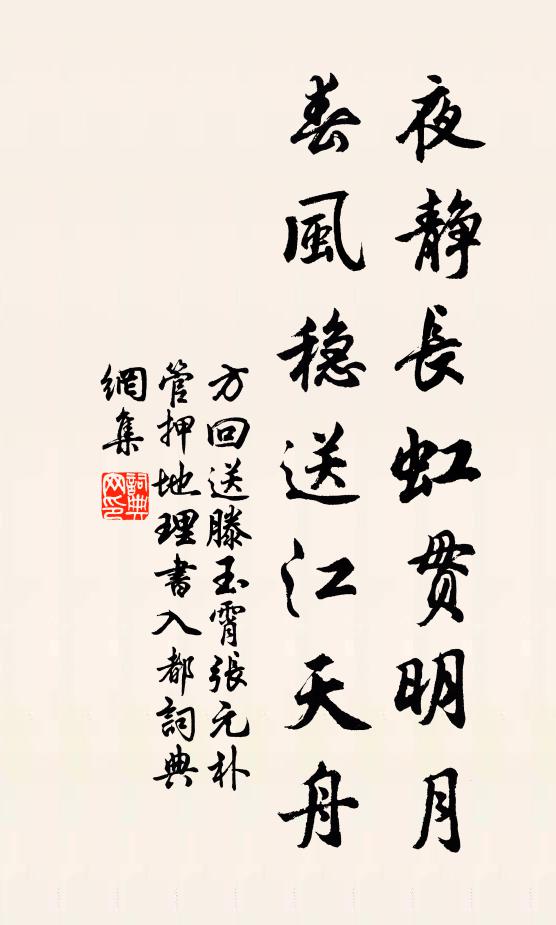 夜静長虹贯明月
春風稳送江天舟
方回送滕玉霄張元朴
管押地理書入都詞典
網集
詞典
网印